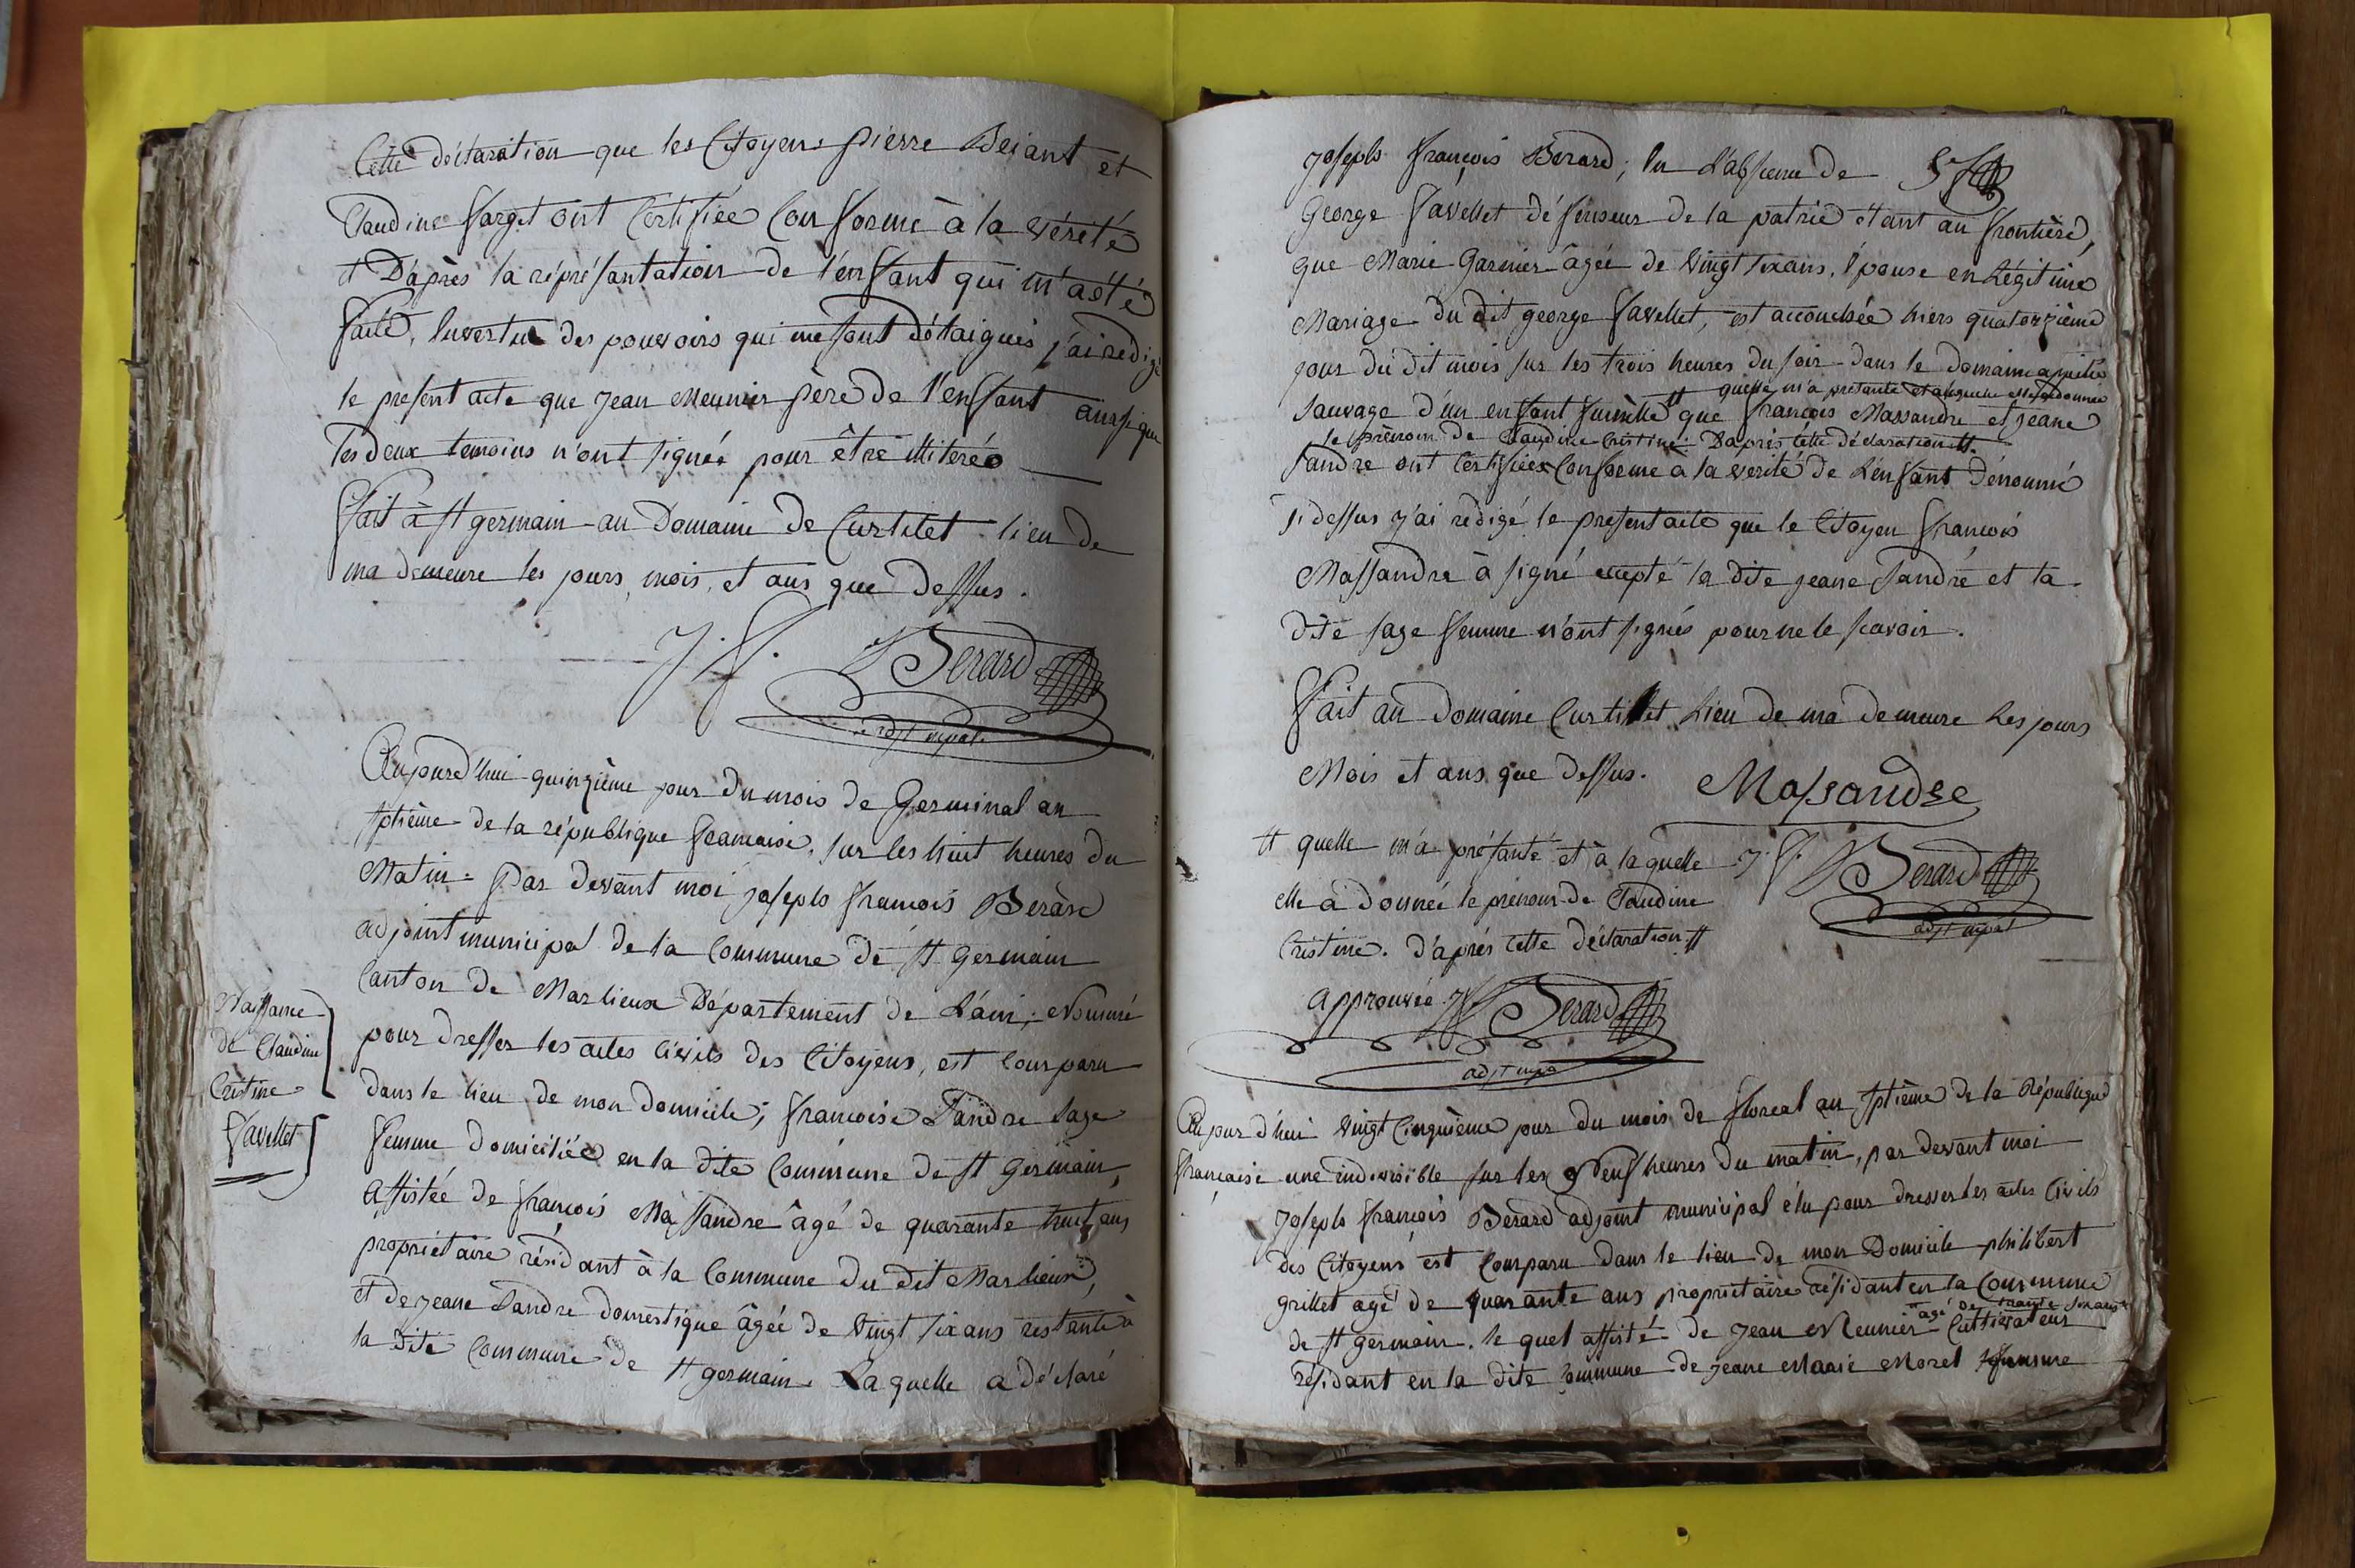 Cette déclaration que les Citoyens pierre Bejant et
Claudine farget ont Certifiée Conforme à la vérité
et D'après la réprésantation de l'enfant qui m'aété
faite, Envertu des pouvoirs qui me sont détaigués j'ai rédigé
le présent acte que jean Meunier père de l'enfant ainsi que
les deux temoins n'ont signés pour être illiteréo
fait à st germain au Domaine de Curtitet lieu de
ma demeure les jours, mois, et ans que Dessus.
J. f. Berard
adjt mpal
Aujourd'hui quinzième jour du mois de Germinal an
sptième de la république francaise, sur les huit heures du
Matin. Par devant moi joseph francois Berard
adjoint municipal de la Commune de st germain
Canton de Marlieux Département de L'ain; Nommé
pour dresser les actes Civils des Citoyens, est Comparu
dans le lieu de mon domicile; francoise Sandre Sage
femme domiciliée en la dite Commune de st germain,
Assistée de francois Massandre âgé de quarante huit ans
proprietaire résidant à la Commune du dit Marlieux,
et de jeane Sandre domestique âgée de Vingt six ans restante à
la dite Commune de st germain. Laquelle a déclaré
Naissance
de Claudine
Cristine
favellet
joseph francois Berard; En L'absence de
George favellet défenseur de la patrie étant au frontière,
que Marie Garnier agée de Vingt six ans, Epouse en Légitime
Mariage du dit george favellet, est accouchée hiers quatorzième
jour du dit mois sur les trois heures du soir dans le domaine apellé
quelle m'a présenté et a laquelle elle a donnée
Sauvage d'un enfant fumelle # que francois Massandre et jeane
le prénom de Claudine Cristine. D'après cette déclaration #.
Sandre ont Certifiées Conforme a la verité de L'enfant dénommé
si dessus j'ai rédigé le présent acte que le Citoyen francois
Massandre à signé excepté la dite jeane Sandre et la
dite sage femme n'ont signés pour ne le scavoir.
fait au Domaine Curtillet Lieu de ma demeure Les jours
Mois et ans que Dessus. Massandre
# quelle m'a présanté et à laquelle J. f. Berard
elle a donnée le prénom de Claudine adjt mpal
Cristine. D'après cette déclaration #
approuvée J f Berard
adjt mpal
Aujourd'hui Vingt Cinquième jour du mois de floreal an sptième de la République
francaise une indivisible sur les Neuf heures du matin, par devant moi
joseph francois Berard adjoint municipal élu pour dresser les actes Civils
des Citoyens est Comparu dans le lieu de mon Domicile philibert
grillet agé de quarante ans proprietaire résidant en la Commune
agé de trante six ans
de st germain. le quel assisté de jean Meunier Cultivateur
résidant en la dite Commune de jeane Marie Morel femme